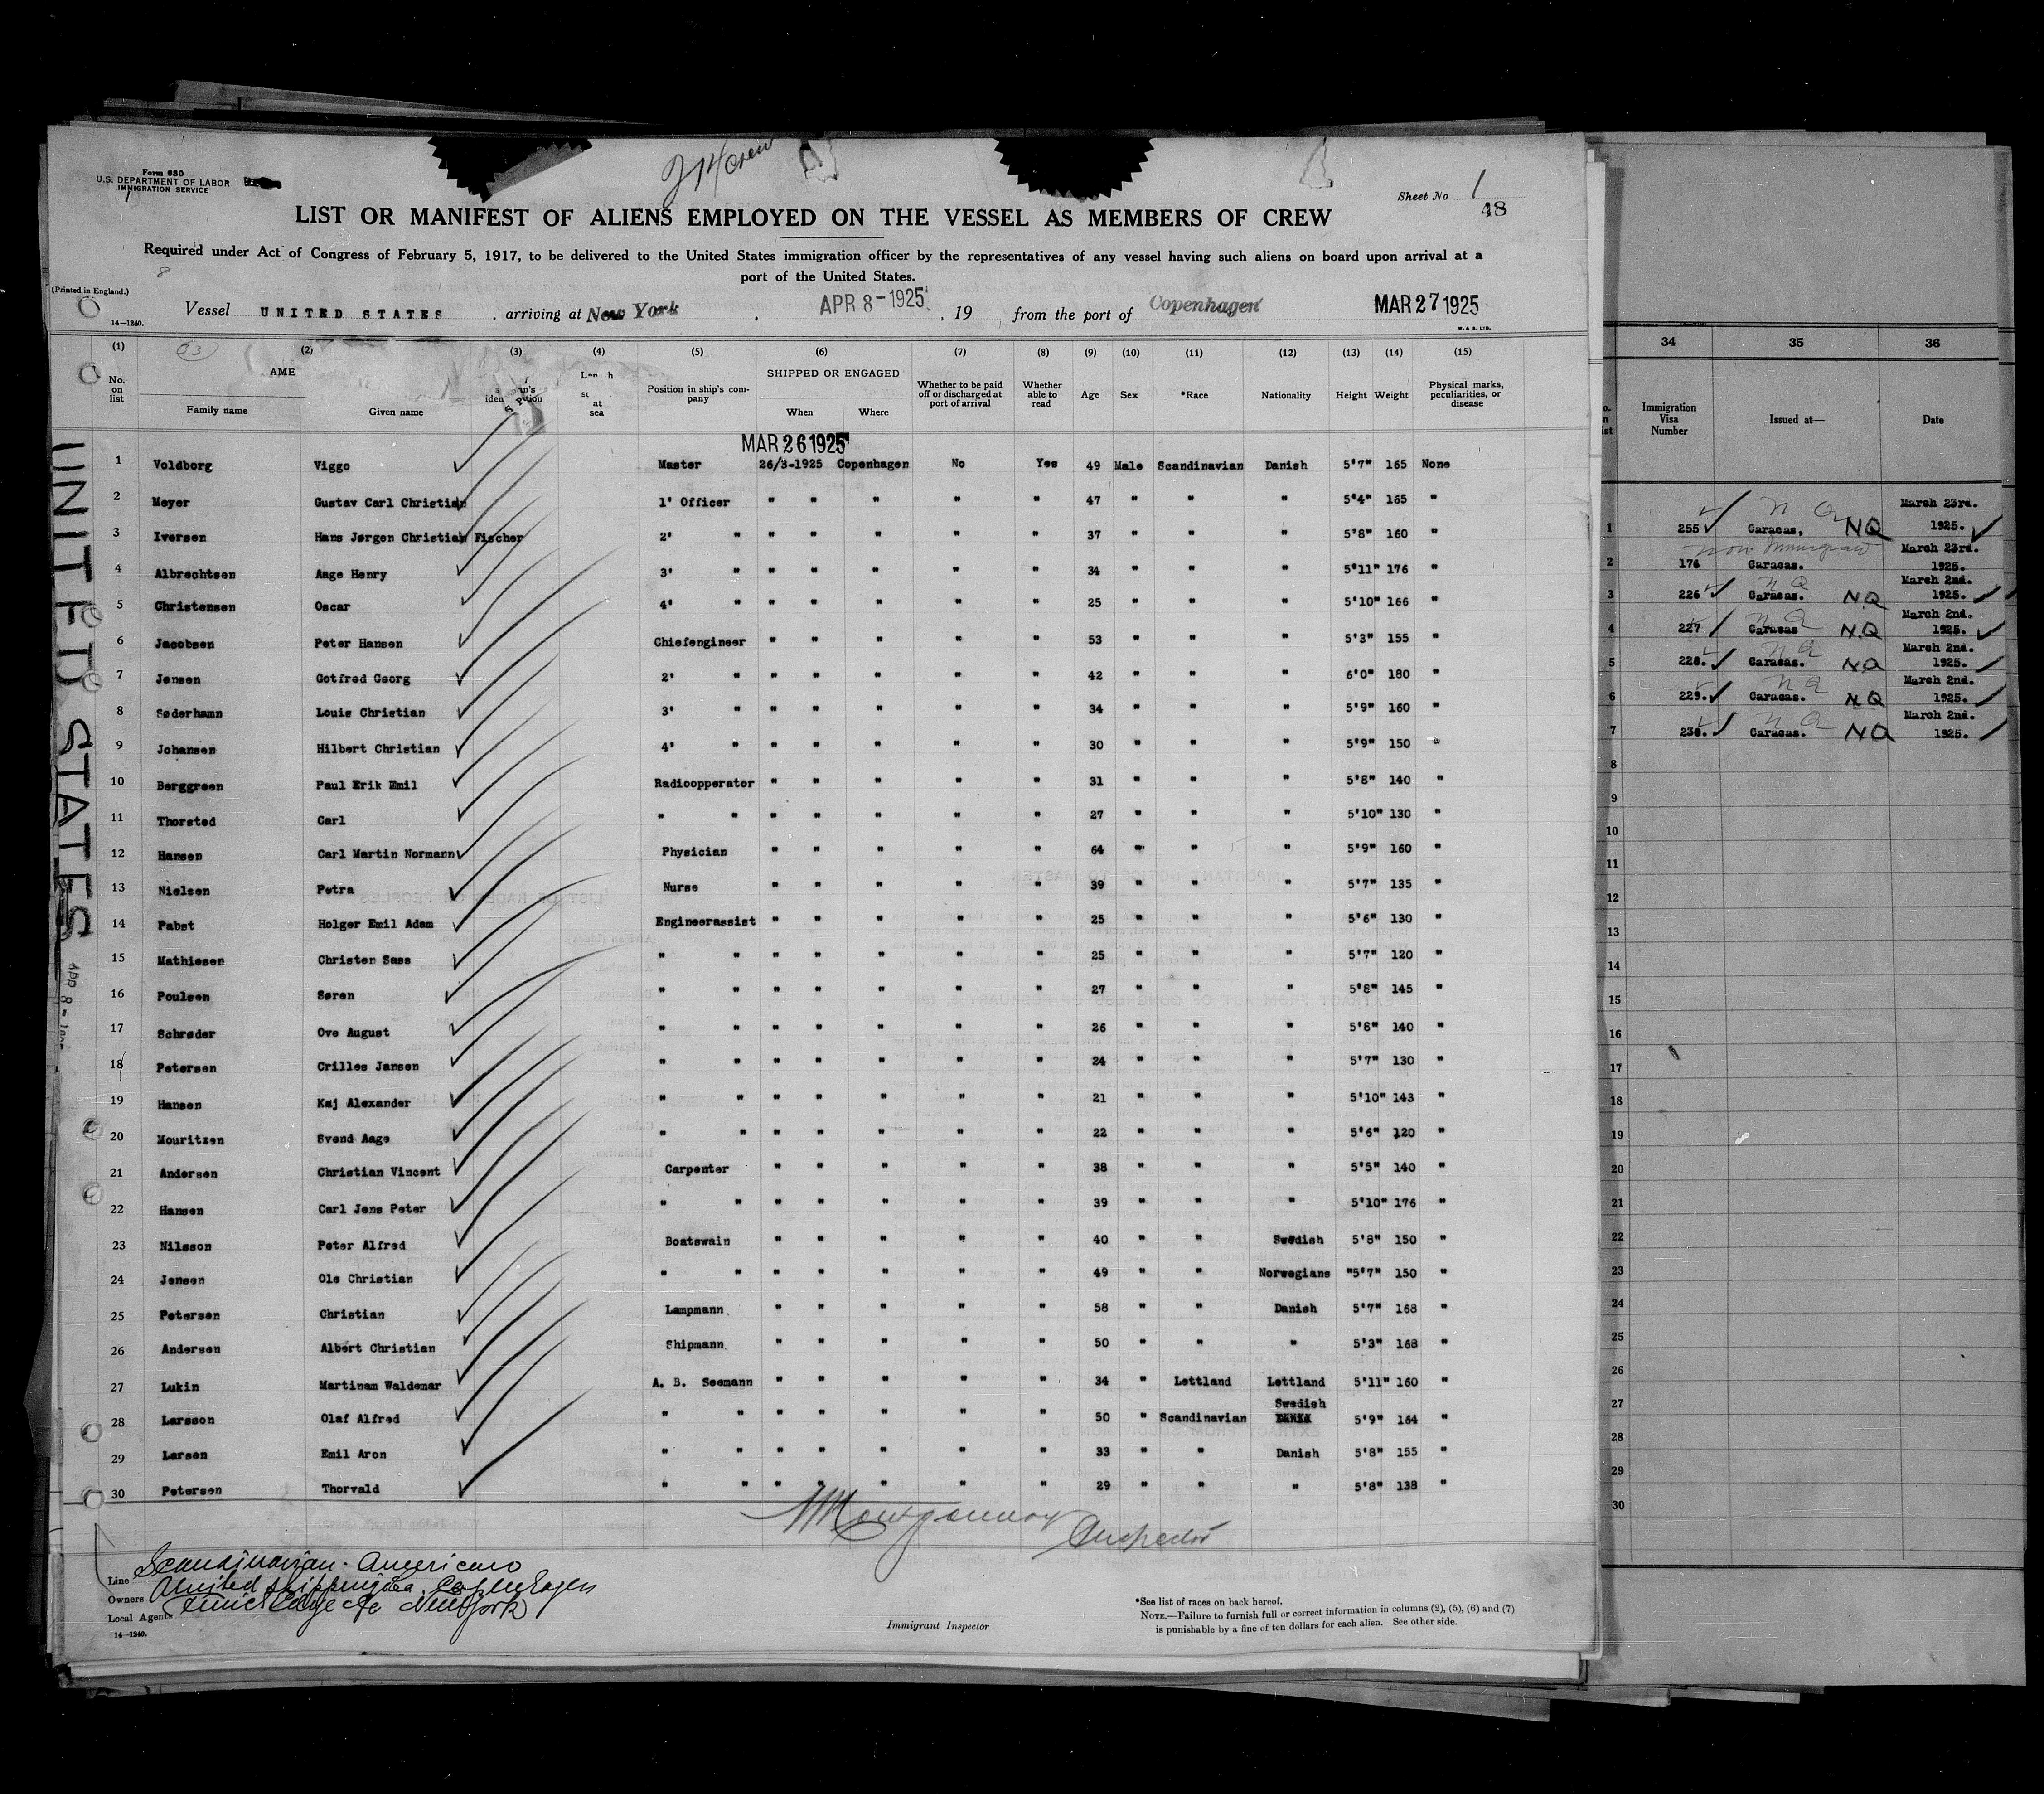 Form 680
U.S. DEPARTMENT OF LABOR
IMMIGRATION SERVICE
Sheet No 1
48
LIST OR MANIFEST OF ALIENS EMPLOYED ON THE VESSEL AS MEMBERS OF CREW
Required under Act of Congress of February 5, 1917, to be delivered to the United States immigration officer by the representatives of any vessel having such aliens on board upon arrival at a
port of the United States.
(Printed in England.)
14—1240.
Vessel UNITED STATES , arriving at New York , APR 8-1925 , 19 from the port of Copenhagen MAR 27 1925
W. & S. LTD.
(1) (2) (3) (4) (5) (6) (7) (8) (9) (10) (11) (12) (13) (14) (15)
No. on list Family name Given name at sea Position in ship's company SHIPPED OR ENGAGED When Where Whether to be paid off or discharged at port of arrival Whether able to read Age Sex *Race Nationality Height Weight Physical marks, peculiarities, or disease
MAR 26 1925
1 Voldborg Viggo Master 26/3-1925 Copenhagen No Yes 49 Male Scandinavian Danish 5'7" 165 None
2 Meyer Gustav Carl Christian 1' Officer " " " " " 47 " " " 5'4" 165 "
3 Iversen Hans Jørgen Christian Fischer 2' " " " " " " 37 " " " 5'8" 160 "
4 Albrechtsen Aage Henry 3' " " " " " " 34 " " " 5'11" 176 "
5 Christensen Oscar 4' " " " " " " 25 " " " 5'10" 166 "
6 Jacobsen Peter Hansen Chiefengineer " " " " " 53 " " " 5'3" 155 "
7 Jensen Gotfred Georg 2' " " " " " " 42 " " " 6'0" 180 "
8 Søderhamn Louis Christian 3' " " " " " " 34 " " " 5'9" 160 "
9 Johansen Hilbert Christian 4' " " " " " " 30 " " " 5'9" 150 "
10 Berggreen Paul Erik Emil Radioopperator " " " " " 31 " " " 5'8" 140 "
11 Thorsted Carl " " " " " " " 27 " " " 5'10" 130 "
12 Hansen Carl Martin Normann Physician " " " " " 64 " " " 5'9" 160 "
13 Nielsen Petra Nurse " " " " " 39 " " " 5'7" 135 "
14 Pabst Holger Emil Adam Engineerassist " " " " " 25 " " " 5'6" 130 "
15 Mathiesen Christen Sass " " " " " " " 25 " " " 5'7" 120 "
16 Poulsen Søren " " " " " " " 27 " " " 5'8" 145 "
17 Schrøder Ove August " " " " " " " 26 " " " 5'8" 140 "
18 Petersen Crilles Jansen " " " " " " " 24 " " " 5'7" 130 "
19 Hansen Kaj Alexander " " " " " " " 21 " " " 5'10" 143 "
20 Mouritzen Svend Aage " " " " " " " 22 " " " 5'6" 120 "
21 Andersen Christian Vincent Carpenter " " " " " 38 " " " 5'5" 140 "
22 Hansen Carl Jens Peter " " " " " " " 39 " " " 5'10" 176 "
23 Nilsson Peter Alfred Boatswain " " " " " 40 " " Swedish 5'8" 150 "
24 Jensen Ole Christian " " " " " " " 49 " " Norwegians "5'7" 150 "
25 Petersen Christian Lampmann " " " " " 58 " " Danish 5'7" 168 "
26 Andersen Albert Christian Shipmann " " " " " 50 " " " 5'3" 168 "
27 Lukin Martinam Waldemar A. B. Seemann " " " " " 34 " Lettland Lettland 5'11" 160 "
28 Larsson Olaf Alfred " " " " " " " 50 " Scandinavian Swedish 5'9" 164 "
29 Larsen Emil Aron " " " " " " " 33 " " Danish 5'8" 155 "
30 Petersen Thorvald " " " " " " " 29 " " " 5'8" 138 "
Montgomery
Inspector
Line Scandinavian-American
Owners United shipping Co. Copenhagen
Local Agents Funch Edye Co New York
14—1240.
Immigrant Inspector
*See list of races on back hereof.
NOTE.—Failure to furnish full or correct information in columns (2), (5), (6) and (7)
is punishable by a fine of ten dollars for each alien. See other side.
UNITED STATES
APR 8-
34 35 36
Immigration Visa Number Issued at— Date
1 255 Caracas, NQ March 23rd. 1925.
non Immigrant
2 176 Caracas. March 23rd. 1925.
3 226 Caracas. NQ March 2nd. 1925.
4 227 Caracas NQ March 2nd. 1925.
5 228. Caracas. NQ March 2nd. 1925.
6 229. Caracas. NQ March 2nd. 1925.
7 230. Caracas. NQ March 2nd. 1925.
8
9
10
11
12
13
14
15
16
17
18
19
20
21
22
23
24
25
26
27
28
29
30